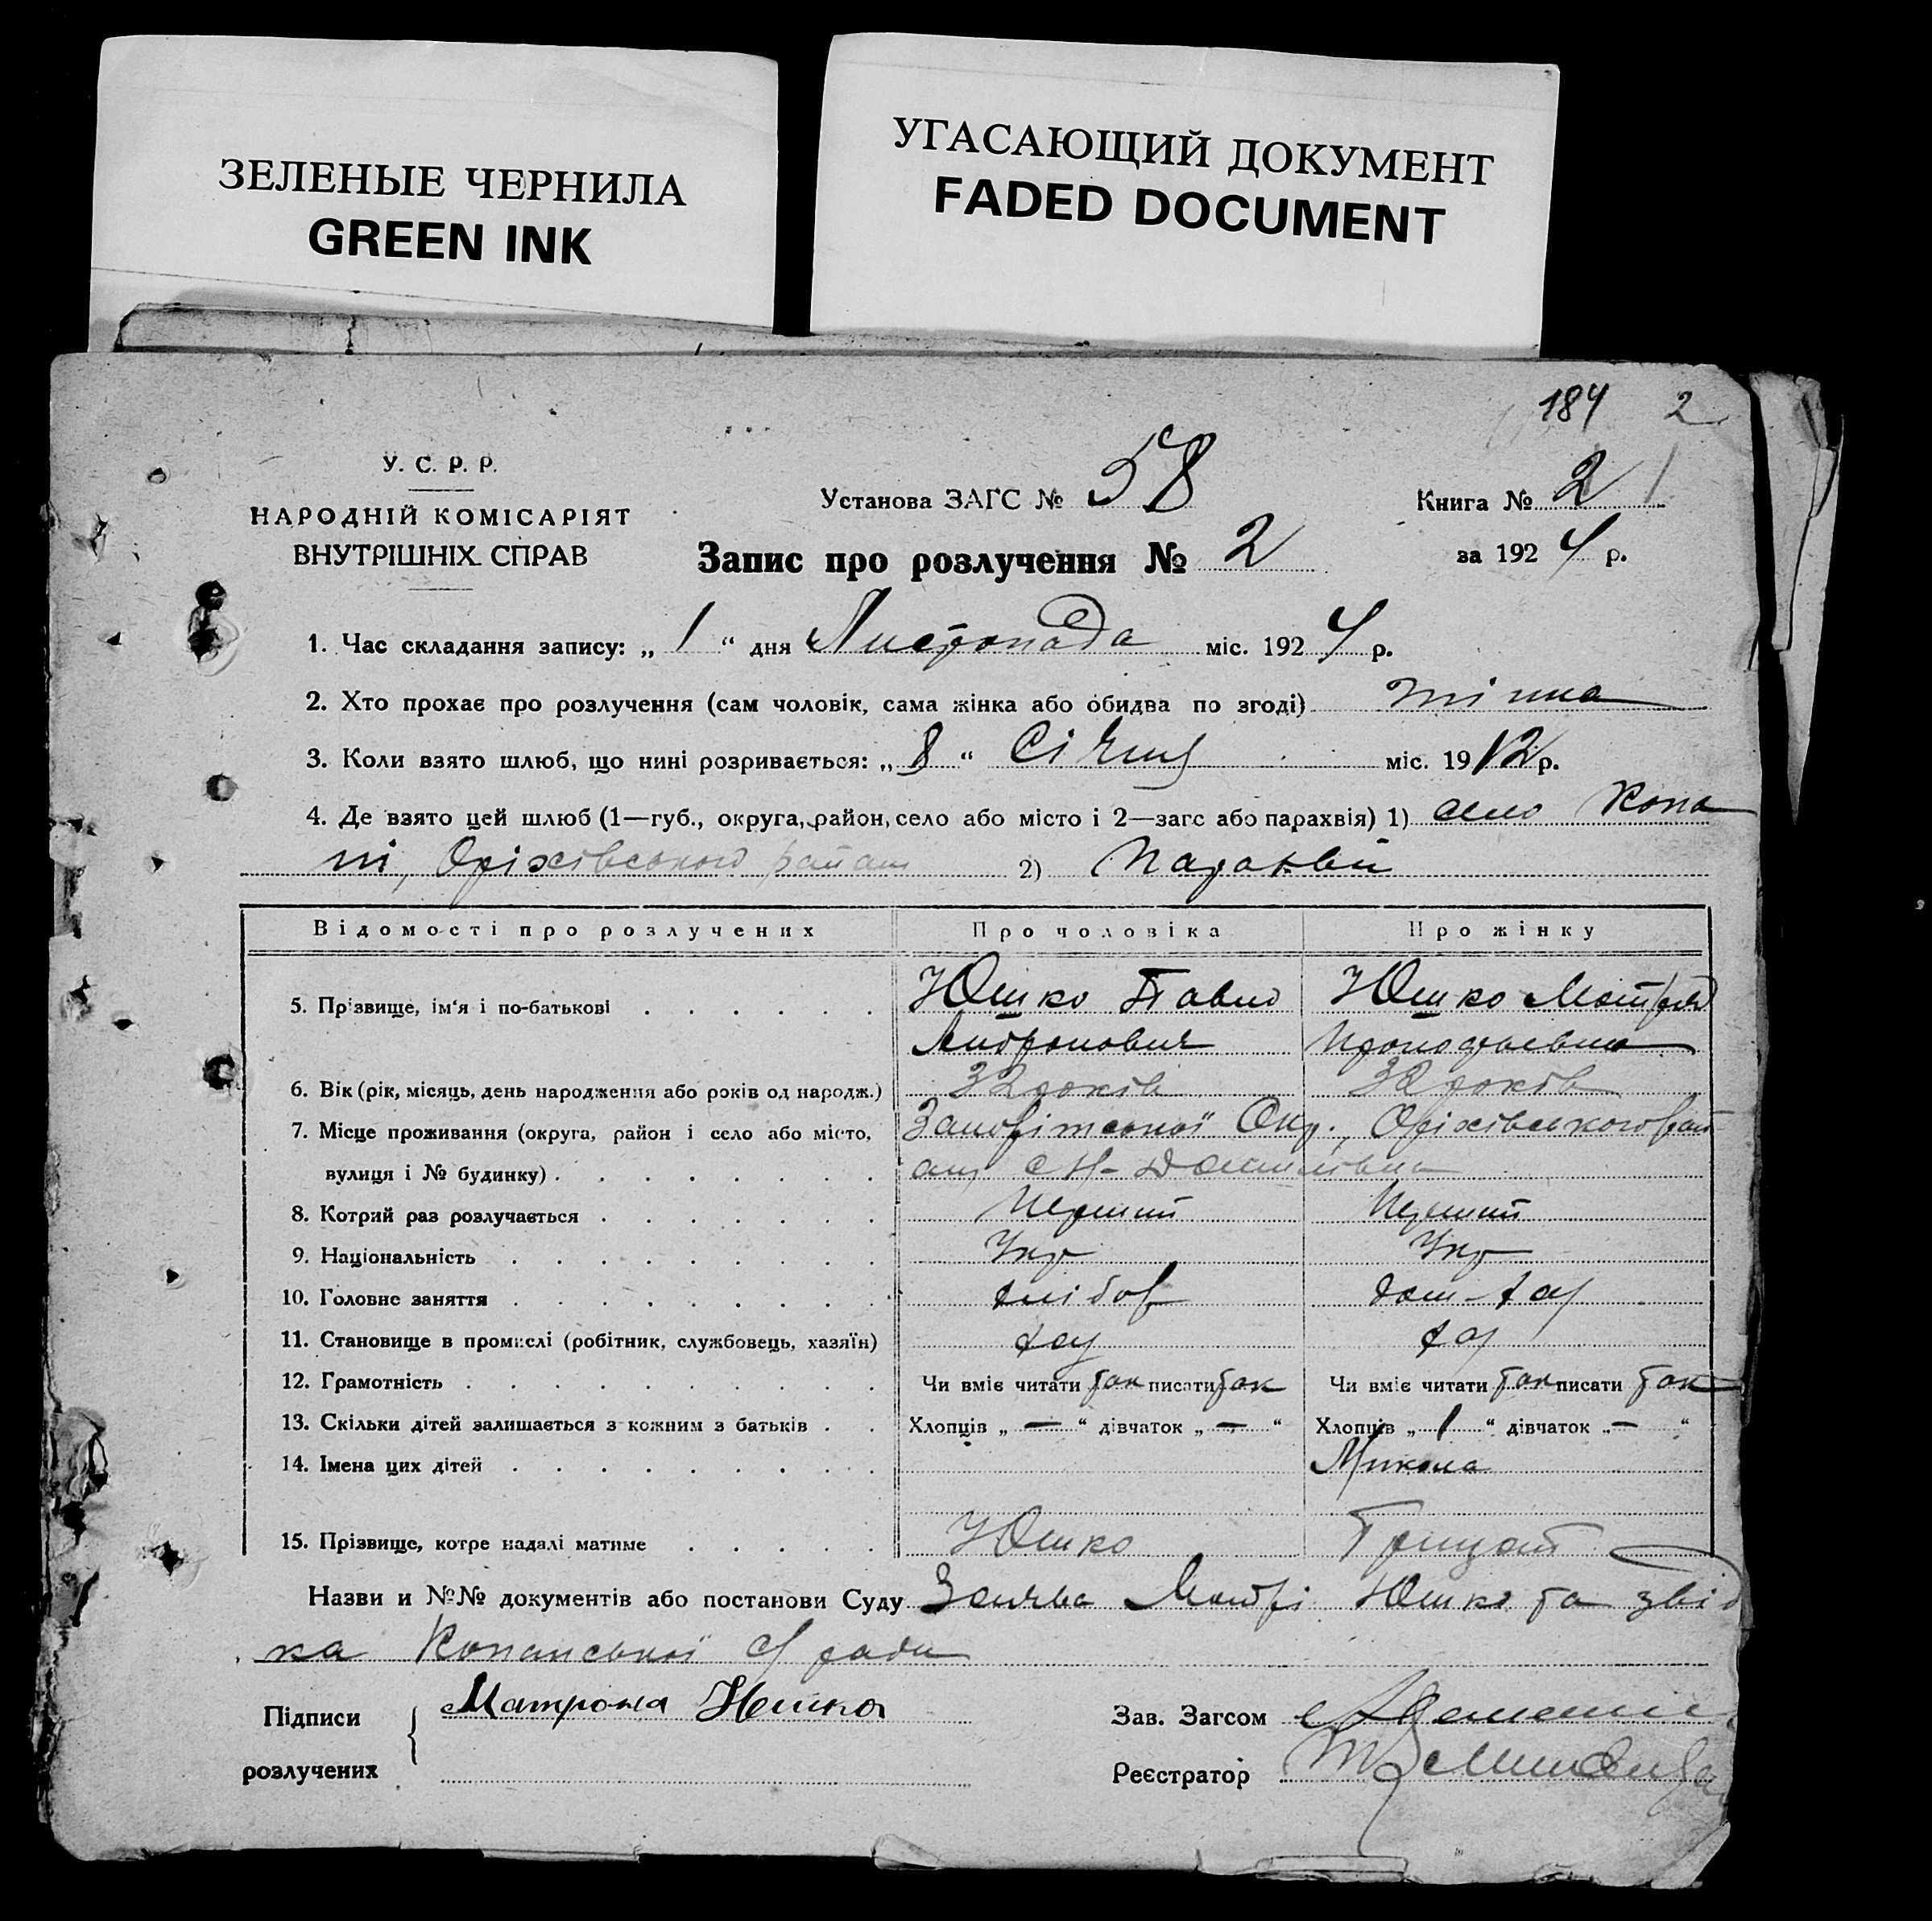 ЗЕЛЕНЫЕ ЧЕРНИЛА
GREEN INK
УГАСАЮЩИЙ ДОКУМЕНТ
FADED DOCUMENT
184 2
У. С. Р. Р.
НАРОДНІЙ КОМІСАРІЯТ
ВНУТРІШНІХ СПРАВ
Установа ЗАГС № 58
Книга № 2
Запис про розлучення № 2
за 1924 р.
1. Час складання запису: „ 1 “ дня Листопада міс. 1924 р.
2. Хто прохає про розлучення (сам чоловік, сама жінка або обидва по згоді) жінка
3. Коли взято шлюб, що нині розривається: „ 8 “ Січня міс. 1912 р.
4. Де взято цей шлюб (1—губ., округа, район, село або місто і 2—загс або парахвія) 1) село Копа
ні, Оріхівського району 2) Парахвії
Відомості про розлучених Про чоловіка Про жінку
5. Прізвище, ім'я і по-батькові Юшко Павло Юшко Мотря
Андронович
6. Вік (рік, місяць, день народження або років од народж.) 32 років 32 років
7. Місце проживання (округа, район і село або місто, Запоріжської Окр., Оріхівського рай
вулиця і № будинку)
8. Котрий раз розлучається Перший Перший
9. Національність Укр Укр
10. Головне заняття хлібор дом-хаз
11. Становище в промислі (робітник, службовець, хазяїн) хаз хаз
12. Грамотність Чи вміє читати так писати так Чи вміє читати так писати так
13. Скільки дітей залишається з кожним з батьків Хлопців „ — “ дівчаток „ — “ Хлопців „ 1 “ дівчаток „ — “
14. Імена цих дітей Микола
15. Прізвище, котре надалі матиме Юшко
Назви и №№ документів або постанови Суду Заява Мотрі Юшко та звід
ка Копанської с/ ради
Підписи
розлучених
Матрона Юшко
Зав. Загсом
Реєстратор